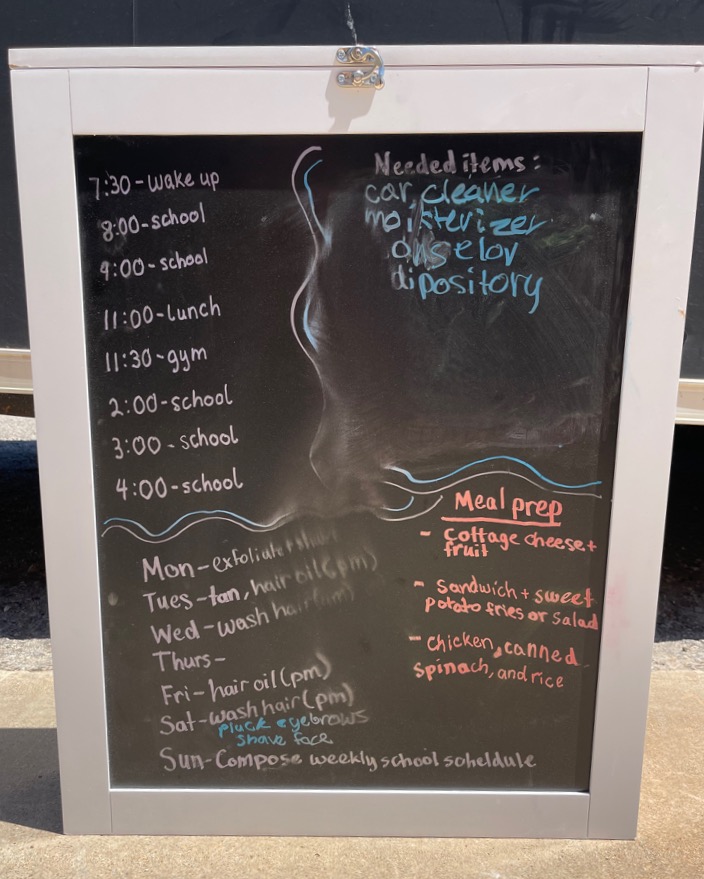 7:30-wake up
8:00-school
9:00-school
11:00-Lunch
11:30-gym
2:00-school
3:00-school
4:00-school
Needed items:
car cleaner
moisterizer
dipository
Mon-exfoliate+shave
Tues-tan, hair oil(pm)
Wed-wash hair(am)
Thurs-
Fri-hair oil(pm)
Sat-wash hair(pm)
pluck eyebrows
shave face
Sun-Compose weekly school scheldule
Meal prep
- Cottage cheese+
fruit
- Sandwich + sweet
potato fries or Salad
- Chicken, canned
spinach, and rice